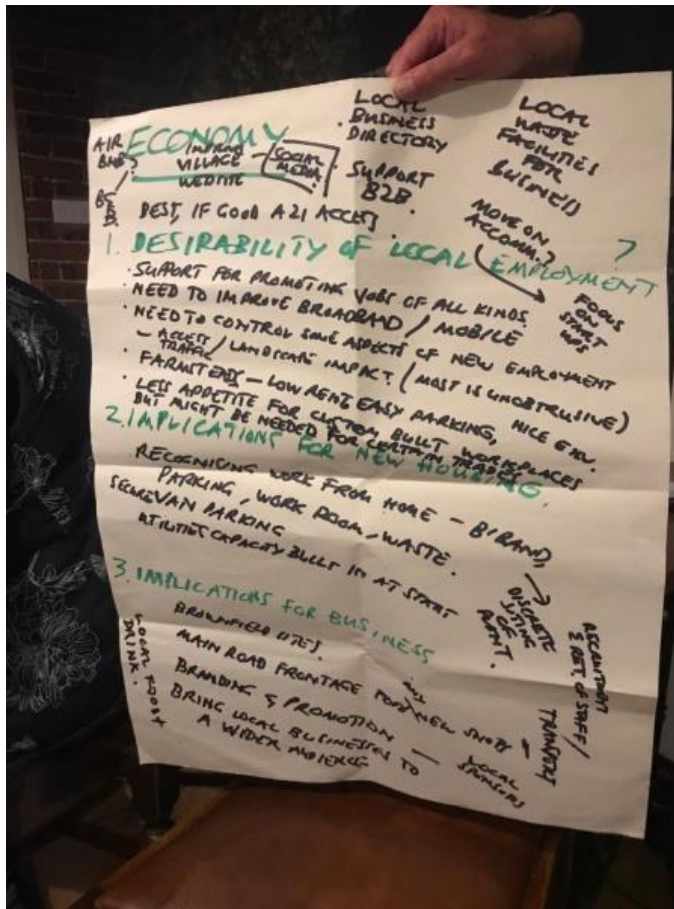 ECONOMY
AIR
BNB?
B&B.
IMPROVE
VILLAGE
WEBSITE
SOCIAL
MEDIA
LOCAL
BUSINESS
DIRECTORY
SUPPORT
B2B
LOCAL
WASTE
FACILITIES
FOR
BUSINESS
BEST, IF GOOD A21 ACCESS
MOVE ON
ACCOMM.?
?
FOCUS
ON
START
UPS
1. DESIRABILITY OF LOCAL EMPLOYMENT
· SUPPORT FOR PROMOTING JOBS OF ALL KINDS.
· NEED TO IMPROVE BROADBAND / MOBILE
· NEED TO CONTROL SOME ASPECTS OF NEW EMPLOYMENT
- ACCESS / LANDSCAPE IMPACT. (MOST IS UNOBTRUSIVE)
TRAFFIC
· FARMSTEADS - LOW RENT EASY PARKING, NICE ENV.
· LESS APPETITE FOR CUSTOM BUILT WORKPLACES
BUT MIGHT BE NEEDED FOR CERTAIN TRADES
2. IMPLICATIONS FOR NEW HOUSING.
RECOGNISING WORK FROM HOME - B'BAND,
PARKING, WORK ROOM, WASTE.
SECURE VAN PARKING
UTILITIES CAPACITY BUILT IN AT START
DISCRETE
SITING
OF
PLANT.
3. IMPLICATIONS FOR BUSINESS
BROWNFIELD SITES.
MAIN ROAD FRONTAGE FOR NEW SHOPS
BRANDING & PROMOTION - LOCAL
SPONSORS
BRING LOCAL BUSINESSES TO
A WIDER AUDIENCE
LOCAL FOOD &
DRINK.
RECRUITMENT
& RET. OF STAFF /
TRANSPORT